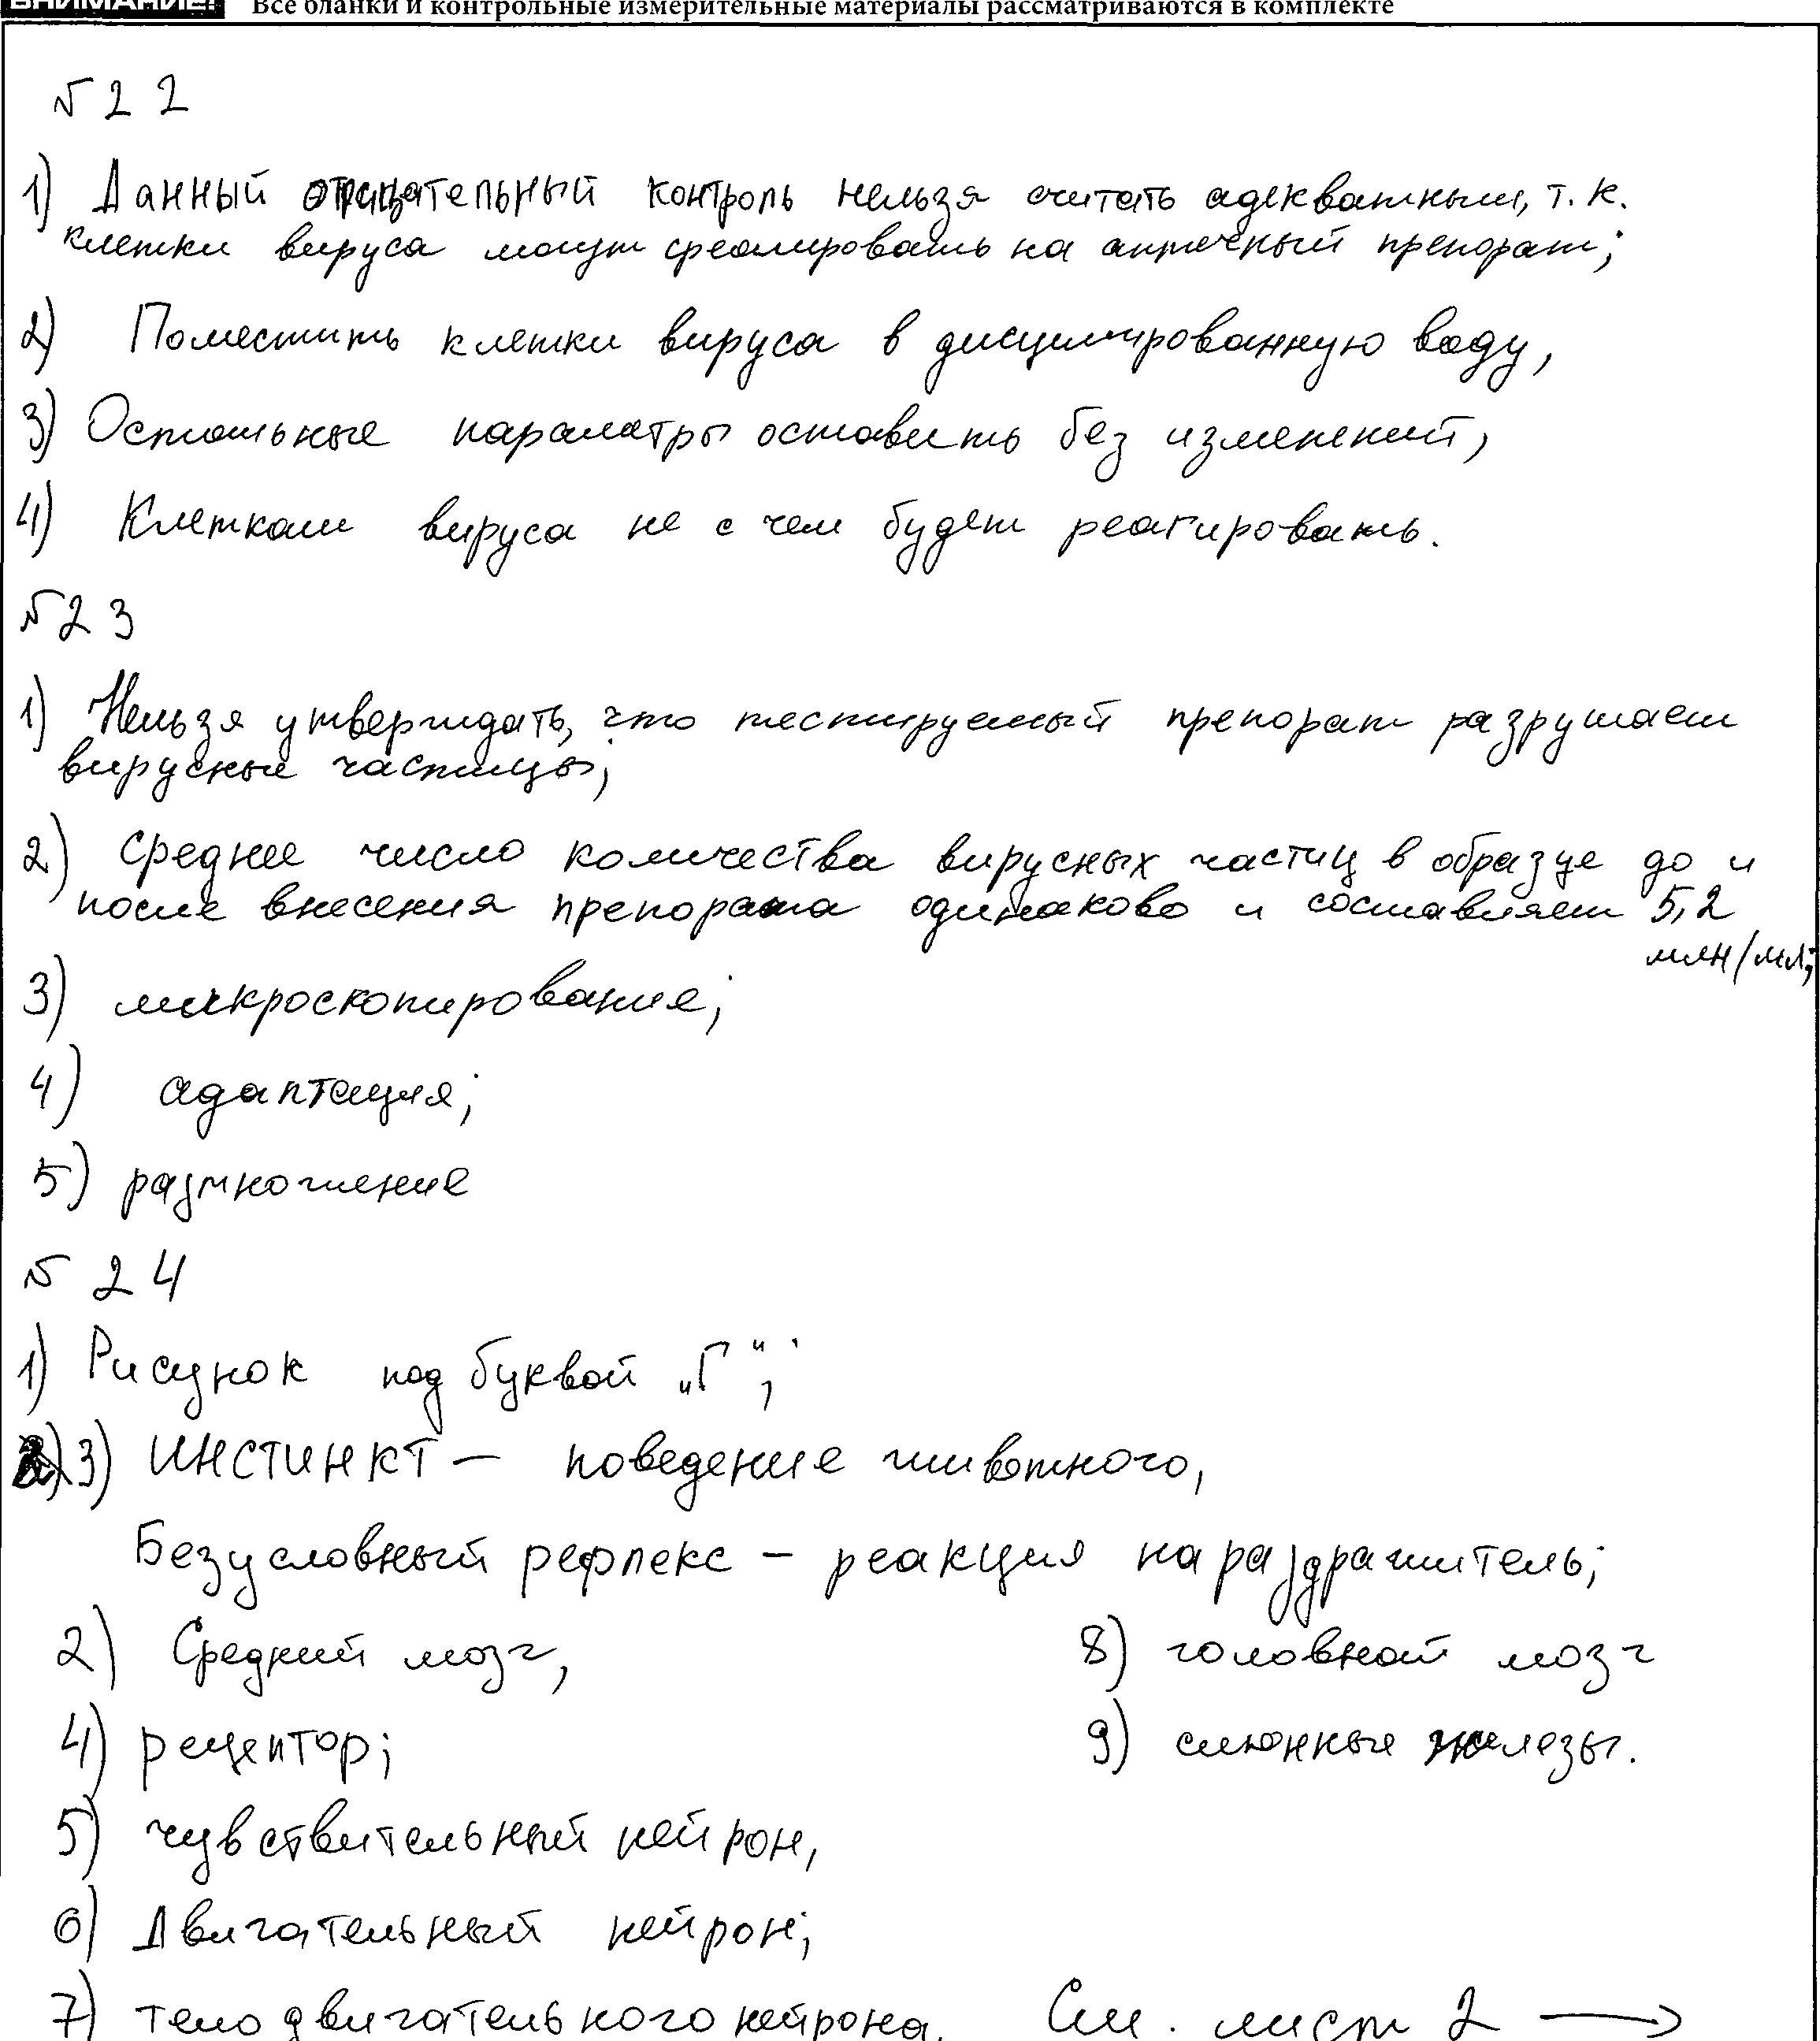 ВНИМАНИЕ! Все бланки и контрольные измерительные материалы рассматриваются в комплекте
№22
1) Данный отрицательный контроль нельзя считать адекватным, т.к.
клетки вируса могут среагировать на аптечный препарат;
2) Поместить клетки вируса в дисцилированную воду,
3) Остальные параматры оставить без изменений,
4) Клеткам вируса не с чем будет реагировать.
№23
1) Нельзя утверждать, что тестируемый препарат разрушает
вирусные частицы;
2) Среднее число количества вирусных частиц в образце до и
после внесения препората одинаково и составляет 5,2
млн/мл;
3) микроскопирование;
4) адаптация;
5) размножение
№24
1) Рисунок под буквой „Г“;
3) ИНСТИНКТ — поведение животного,
Безусловный рефлекс – реакция на раздражитель;
2) Средний мозг, 8) головной мозг
4) рецептор; 9) слюнные железы.
5) чувствительный нейрон,
6) Двигательный нейрон;
7) тело двигательного нейрона. См. лист 2 →